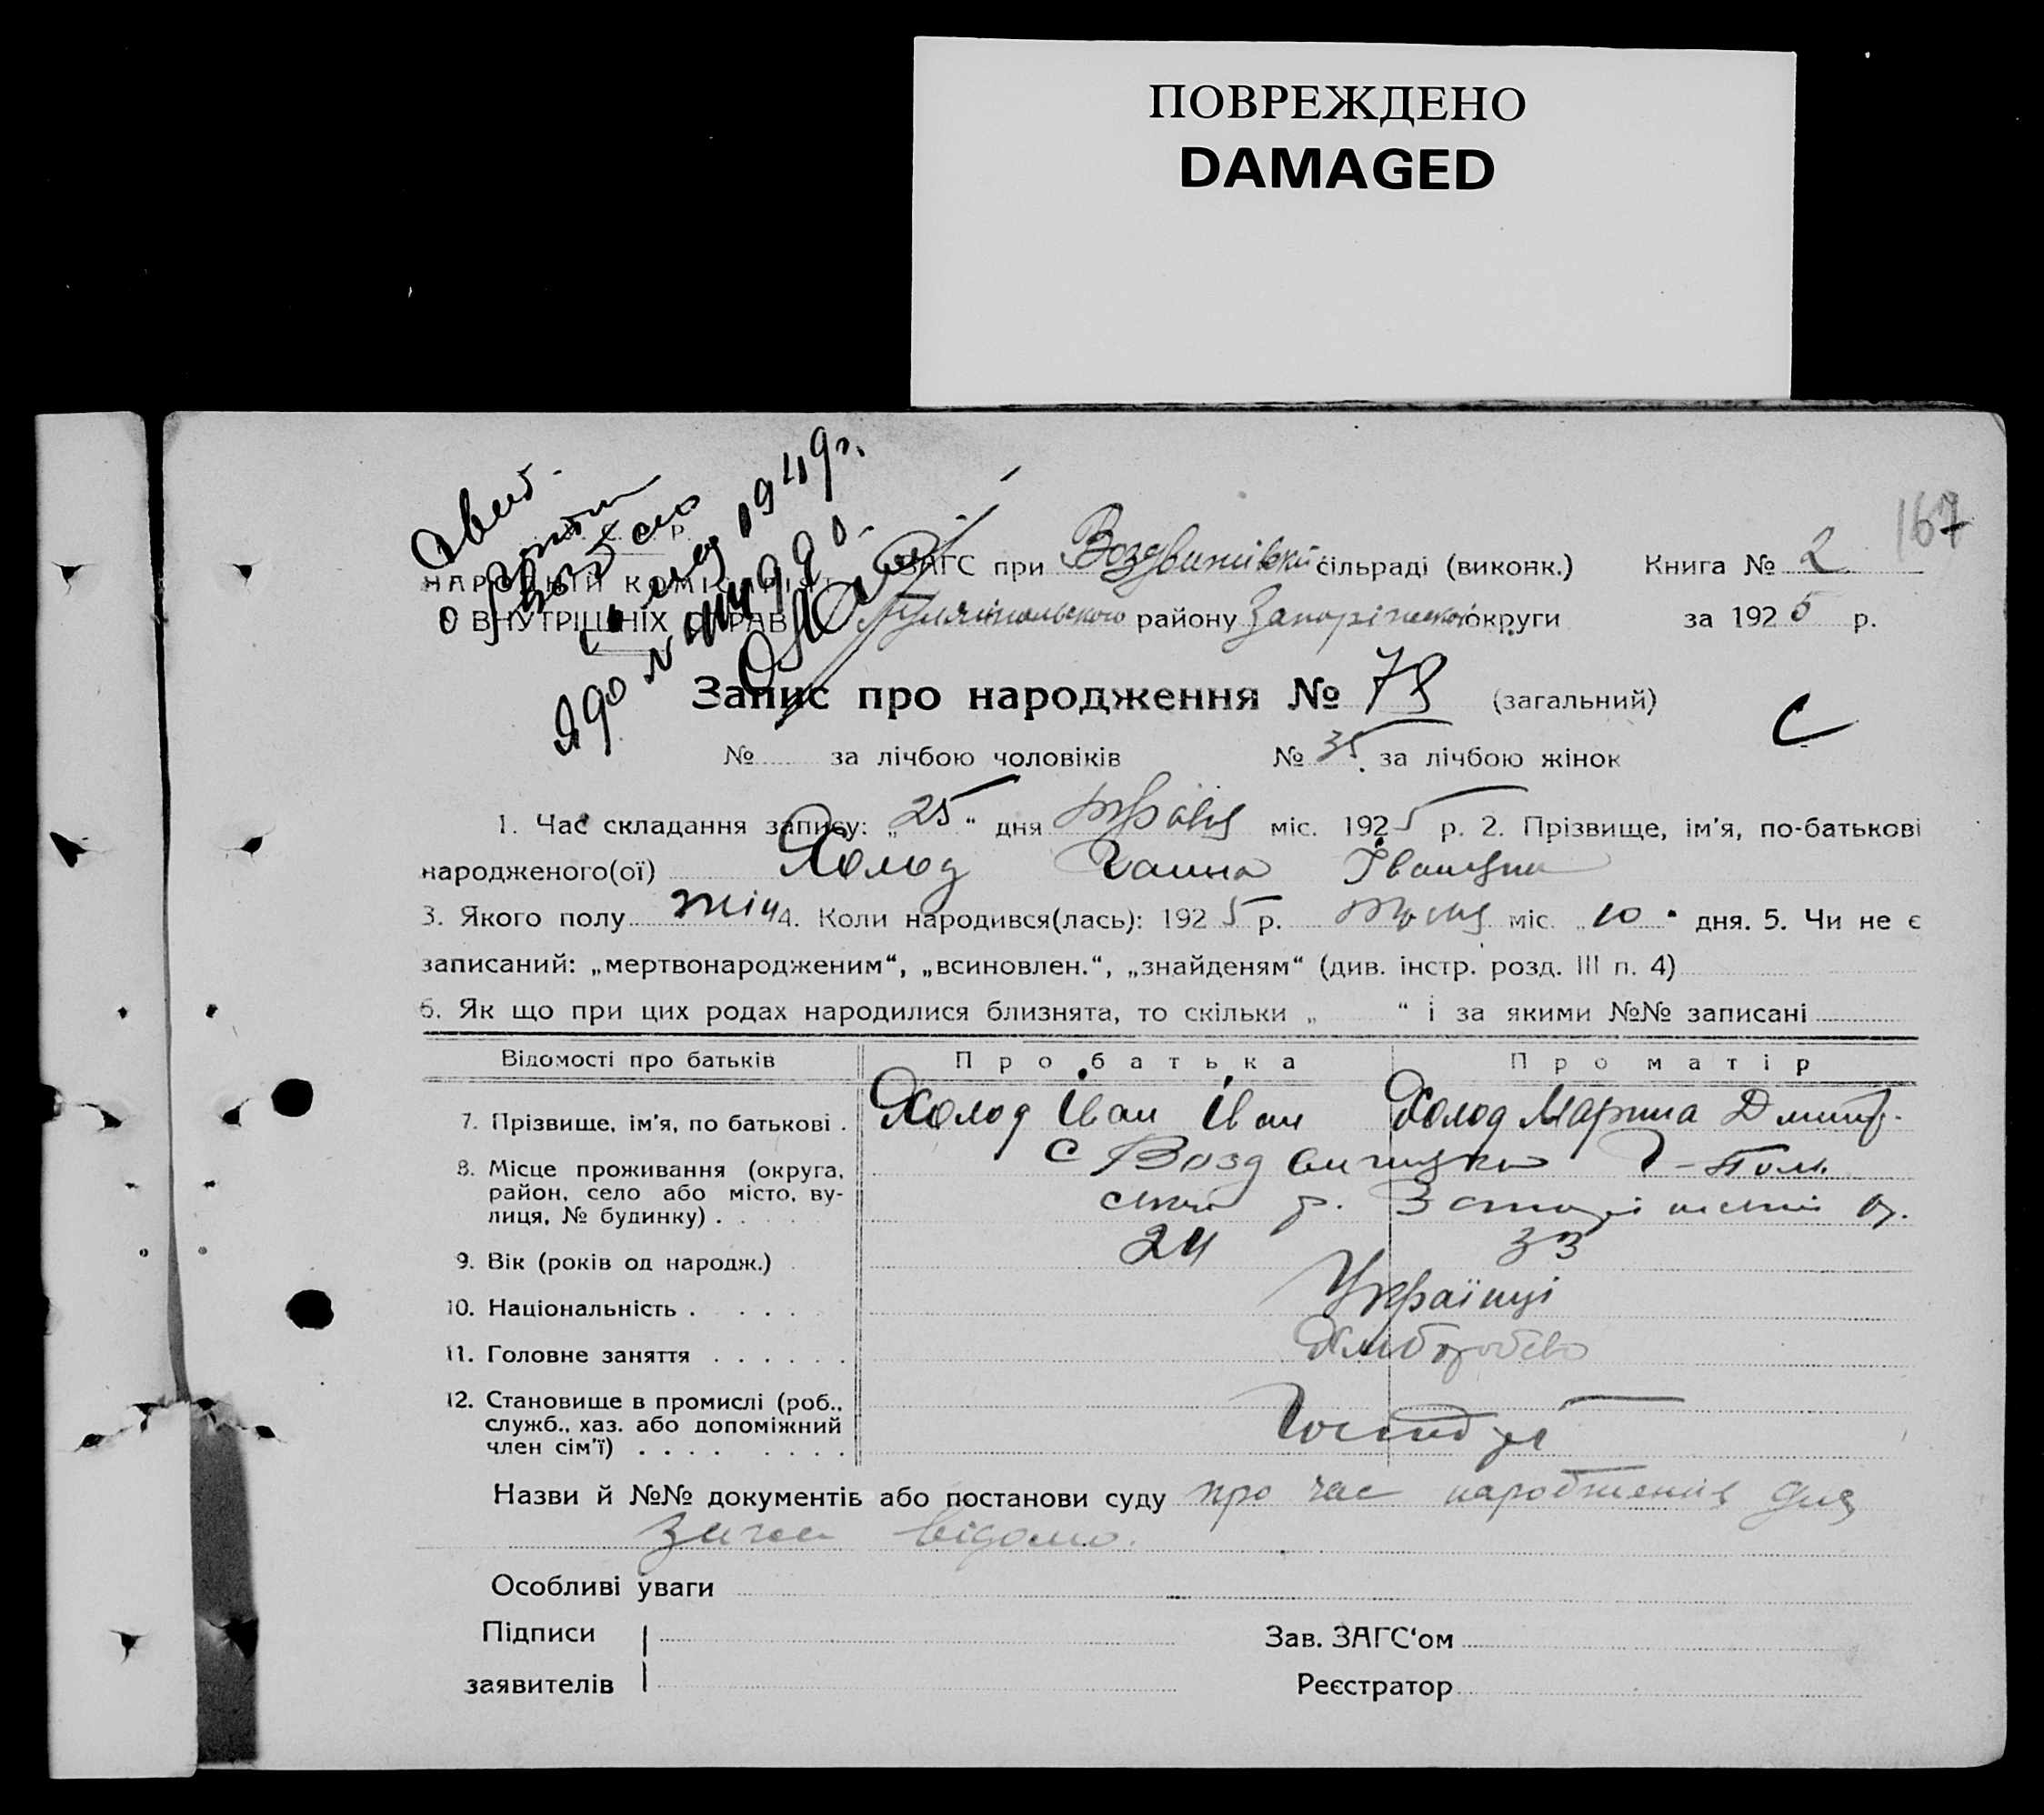 ПОВРЕЖДЕНО
DAMAGED
167
НАРОДНІЙ КОМІСАРІЯТ
ВНУТРІШНІХ СПРАВ
1949 г.
ЗАГС при Воздвижівській сільраді (виконк.) Книга № 2
району Запоріжської округи за 1925 р.
Запис про народження № 78 (загальний)
№ за лічбою чоловіків № 35 за лічбою жінок
С
1. Час складання запису: „25“ дня травня міс. 1925 р. 2. Прізвище, ім'я, по-батькові
народженого(ої) Холод Ганна Іванівна
3. Якого полу жін 4. Коли народився(лась): 1925 р. міс. „10“ дня. 5. Чи не є
записаний: „мертвонародженим“, „всиновлен.“, „знайденям“ (див. інстр. розд. III п. 4)
6. Як що при цих родах народилися близнята, то скільки „ “ і за якими №№ записані
Відомості про батьків Про батька Про матір
7. Прізвище, ім'я, по батькові . Холод Іван Іван Холод Марина Дмитр.
8. Місце проживання (округа, район, село або місто, вулиця, № будинку) . с Воздвижівка Г-Поль
ський р. Запоріжській ок.
9. Вік (років од народж.) 24 33
10. Національність . Українці
11. Головне заняття . Хліборобство
12. Становище в промислі (роб., служб., хаз. або допоміжний член сім'ї) .
Назви й №№ документів або постанови суду про час народження для
загса відомо.
Особливі уваги
Підписи Зав. ЗАГС‘ом
заявителів Реєстратор